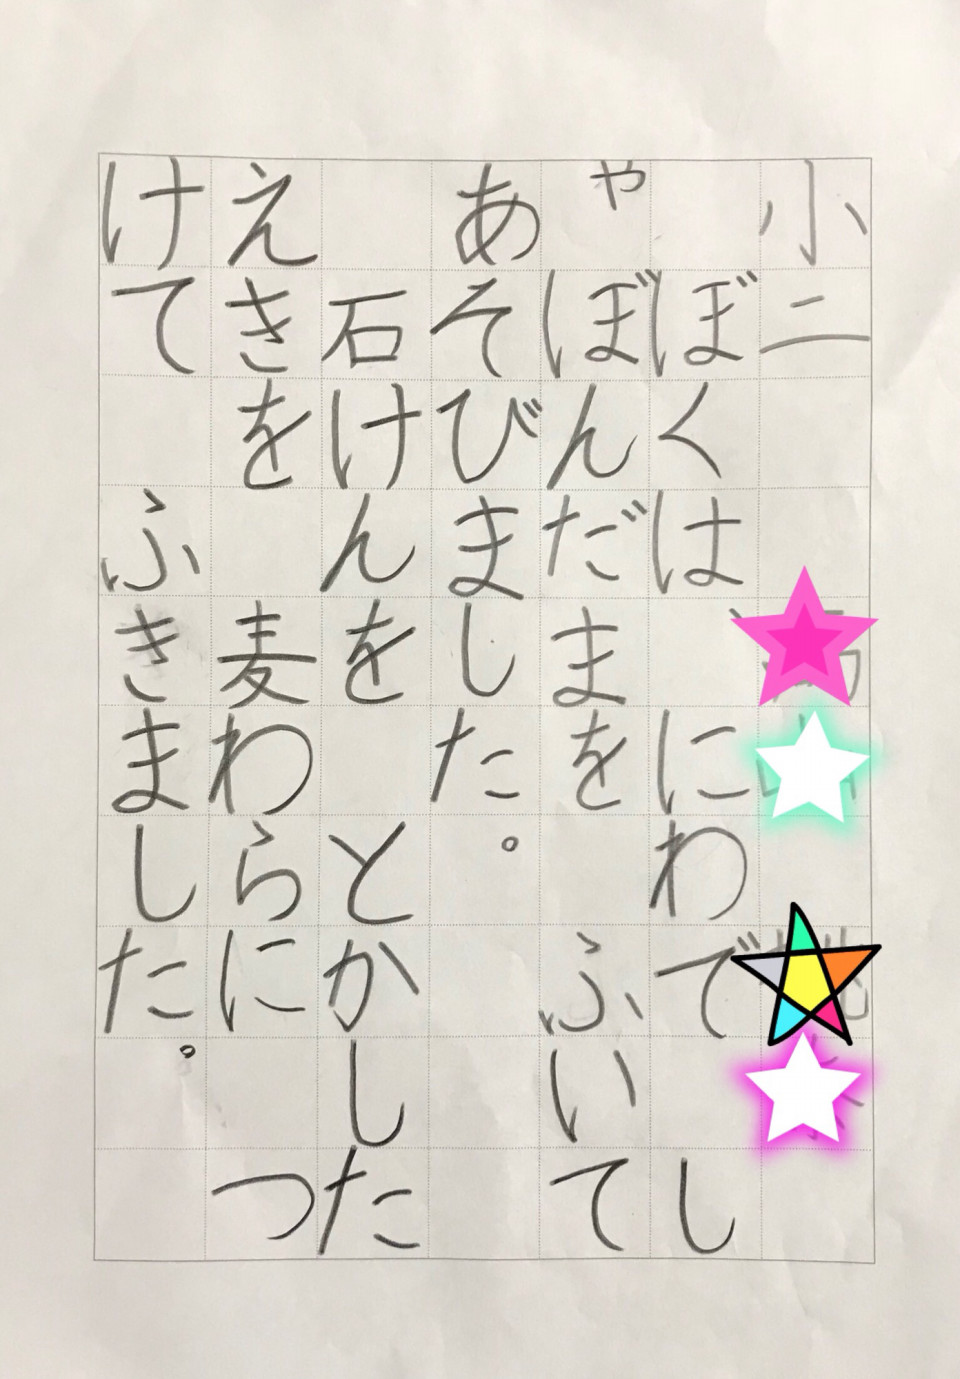 小二
ぼくは にわで し
ゃぼんだまを ふいて
あそびました。
石けんを とかした
えきを 麦わらに つ
けて ふきました。